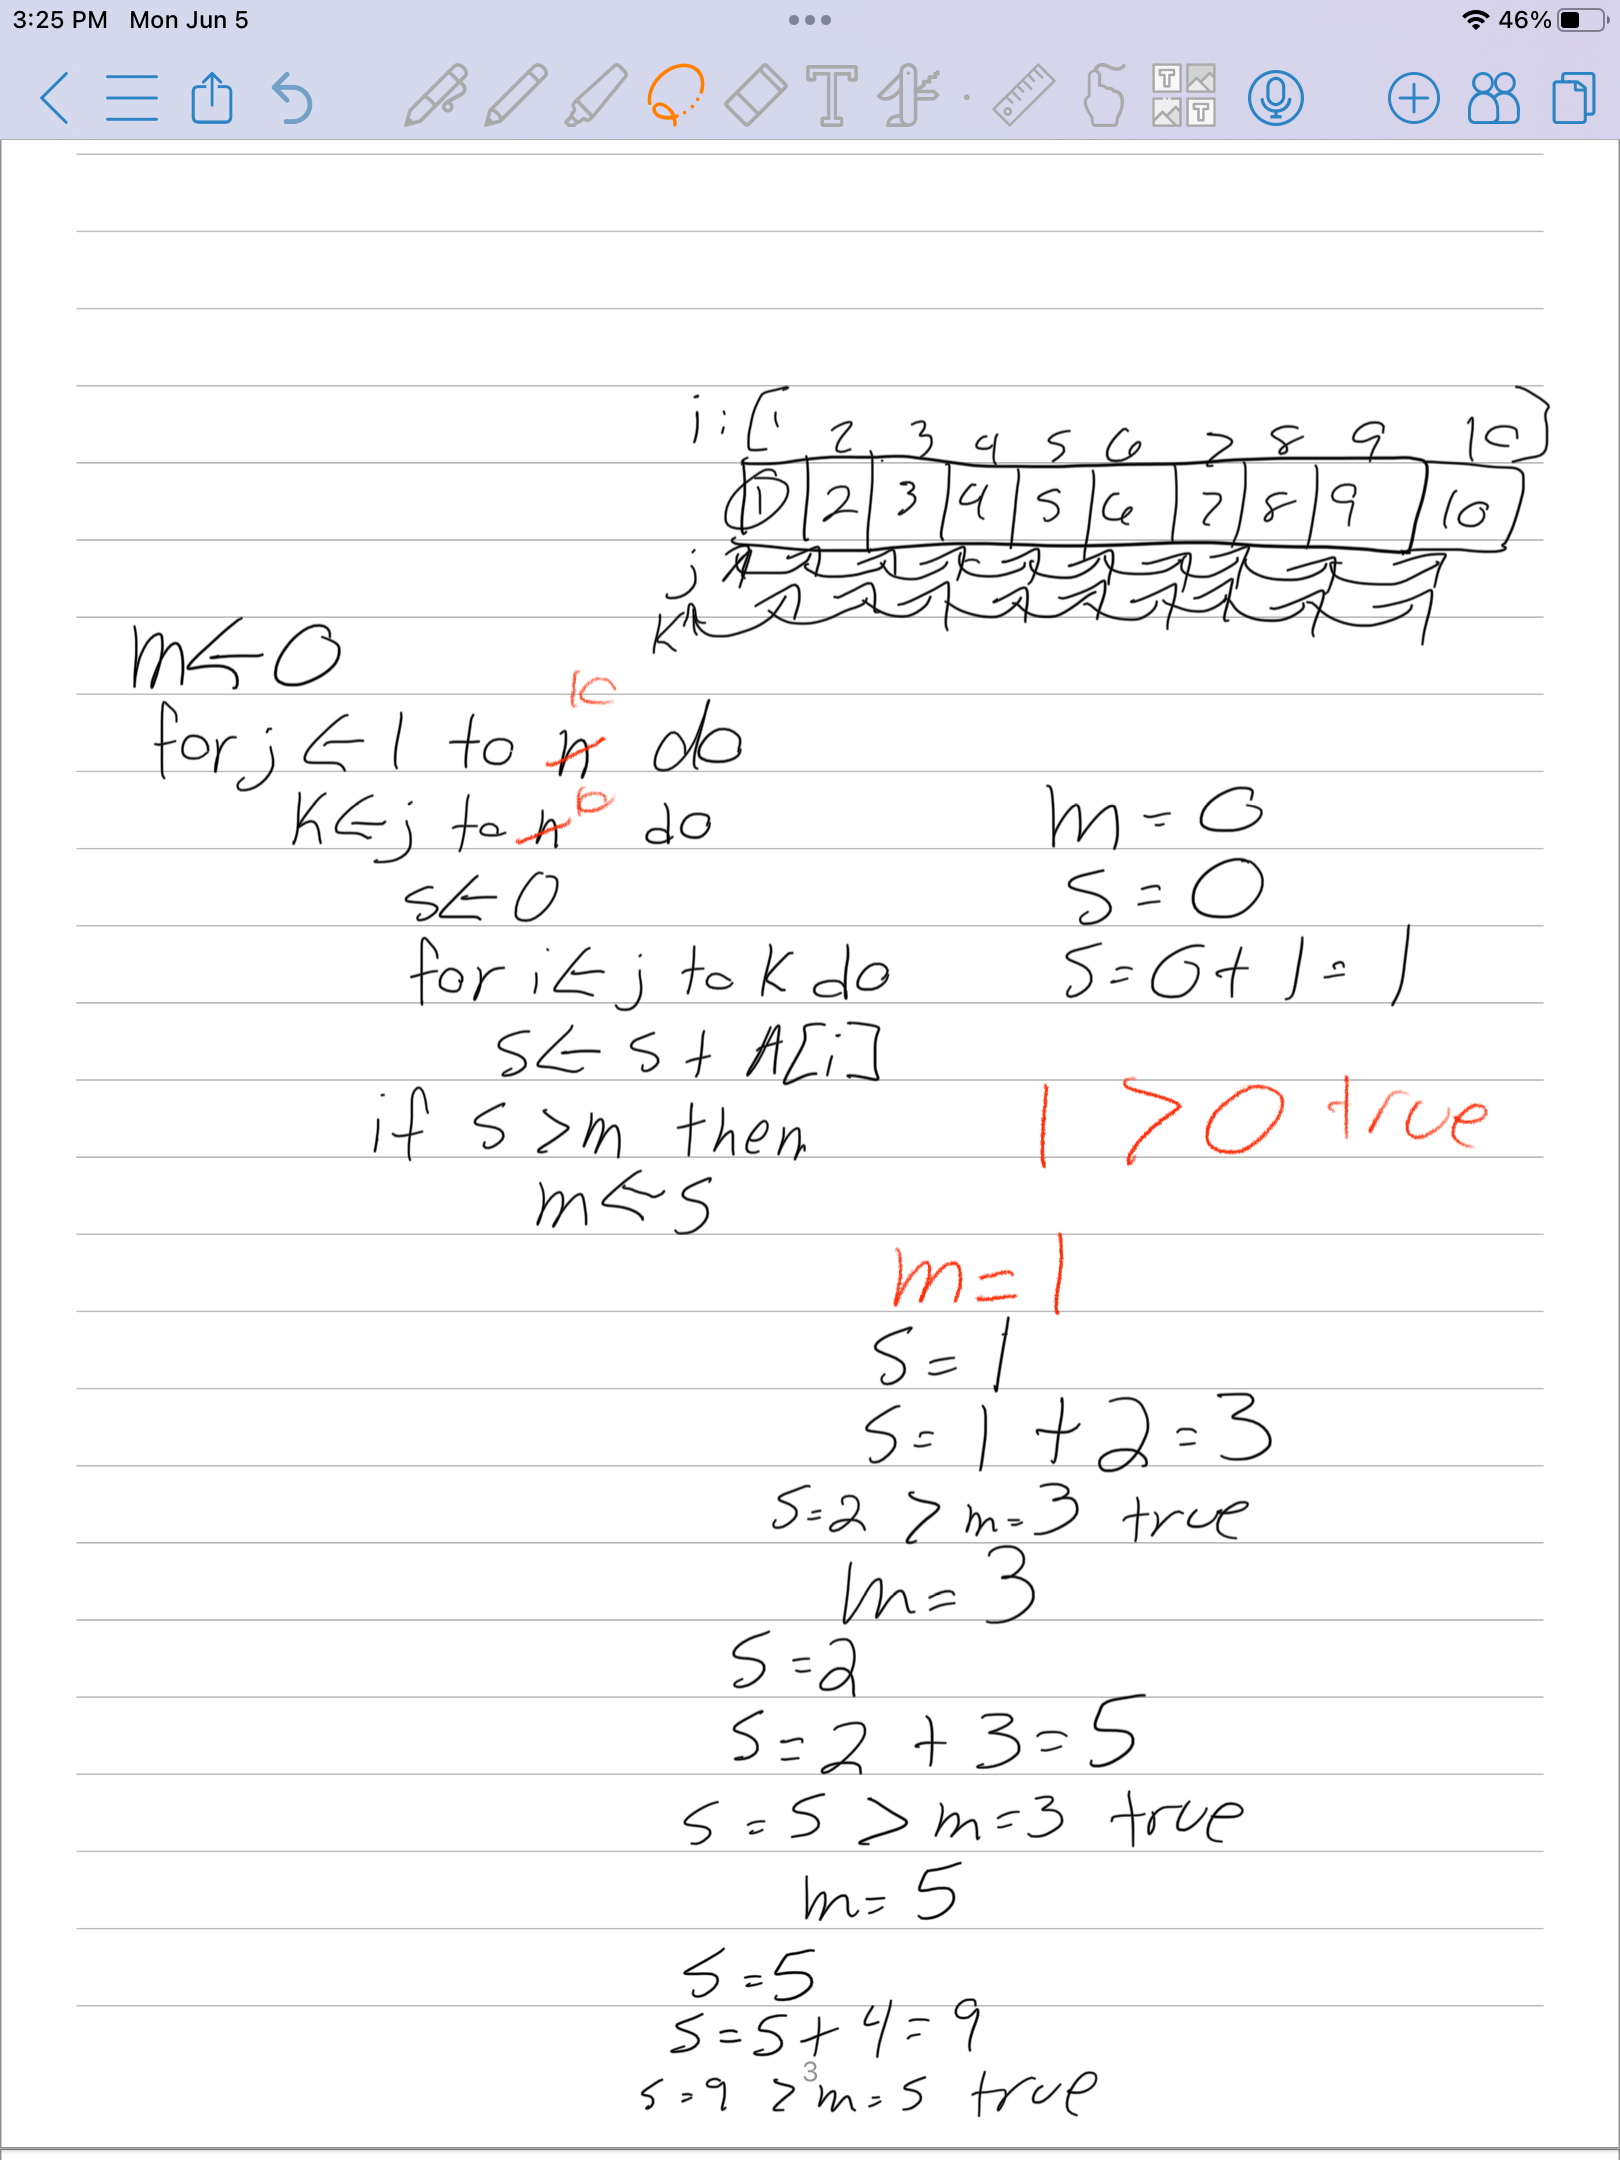 3:25 PM Mon Jun 5
46%
T
T
T
i: [1 2 3 4 5 6 7 8 9 10]
1 2 3 4 5 6 7 8 9 10
j
K
m ← 0
10
for j ← 1 to n do
10
K ← j to n do
s ← 0
for i ← j to K do
s ← s + A[i]
if s > m then
m ← s
m = 0
s = 0
s = 0 + 1 = 1
1 > 0 true
m = 1
s = 1
s = 1 + 2 = 3
s = 2 > m = 3 true
m = 3
s = 2
s = 2 + 3 = 5
s = 5 > m = 3 true
m = 5
s = 5
s = 5 + 4 = 9
3
s = 9 > m = 5 true